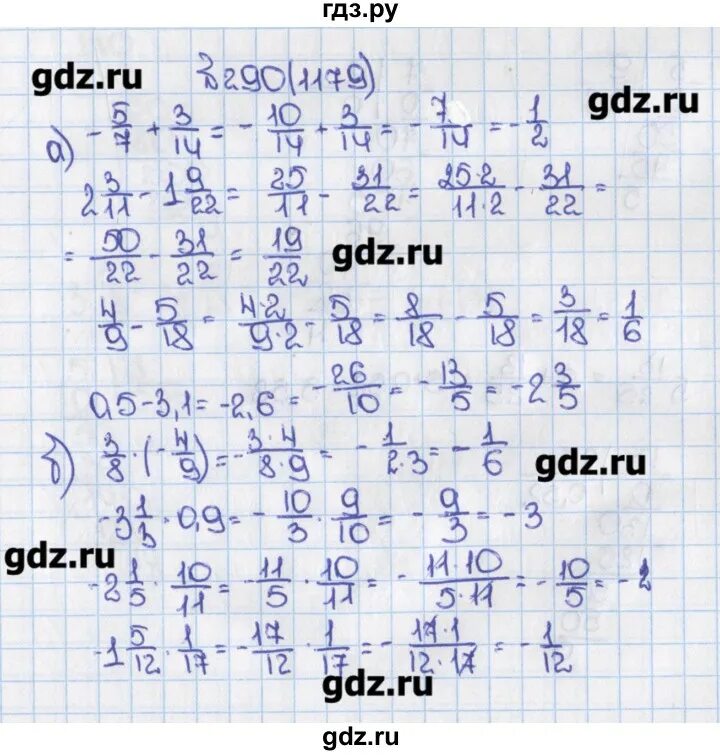 гдз.ру
gdz.ru
№290(1179)
gdz.ru
а) -5/7 + 3/14 = -10/14 + 3/14 = -7/14 = -1/2
2 3/11 - 1 9/22 = 25/11 - 31/22 = 25·2/11·2 - 31/22 =
= 50/22 - 31/22 = 19/22
gdz.ru
4/9 - 5/18 = 4·2/9·2 - 5/18 = 8/18 - 5/18 = 3/18 = 1/6
0,5-3,1 = -2,6 = -26/10 = -13/5 = -2 3/5
б) 3/8 · (-4/9) = -3·4/8·9 = -1/2·3 = -1/6
gdz.ru
-3 1/3 · 0,9 = -10/3 · 9/10 = -9/3 = -3
gdz.ru
-2 1/5 · 10/11 = -11/5 · 10/11 = -11·10/5·11 = -10/5 = -2
-1 5/12 · 1/17 = -17/12 · 1/17 = -17·1/12·17 = -1/12
gdz.ru
gdz.ru